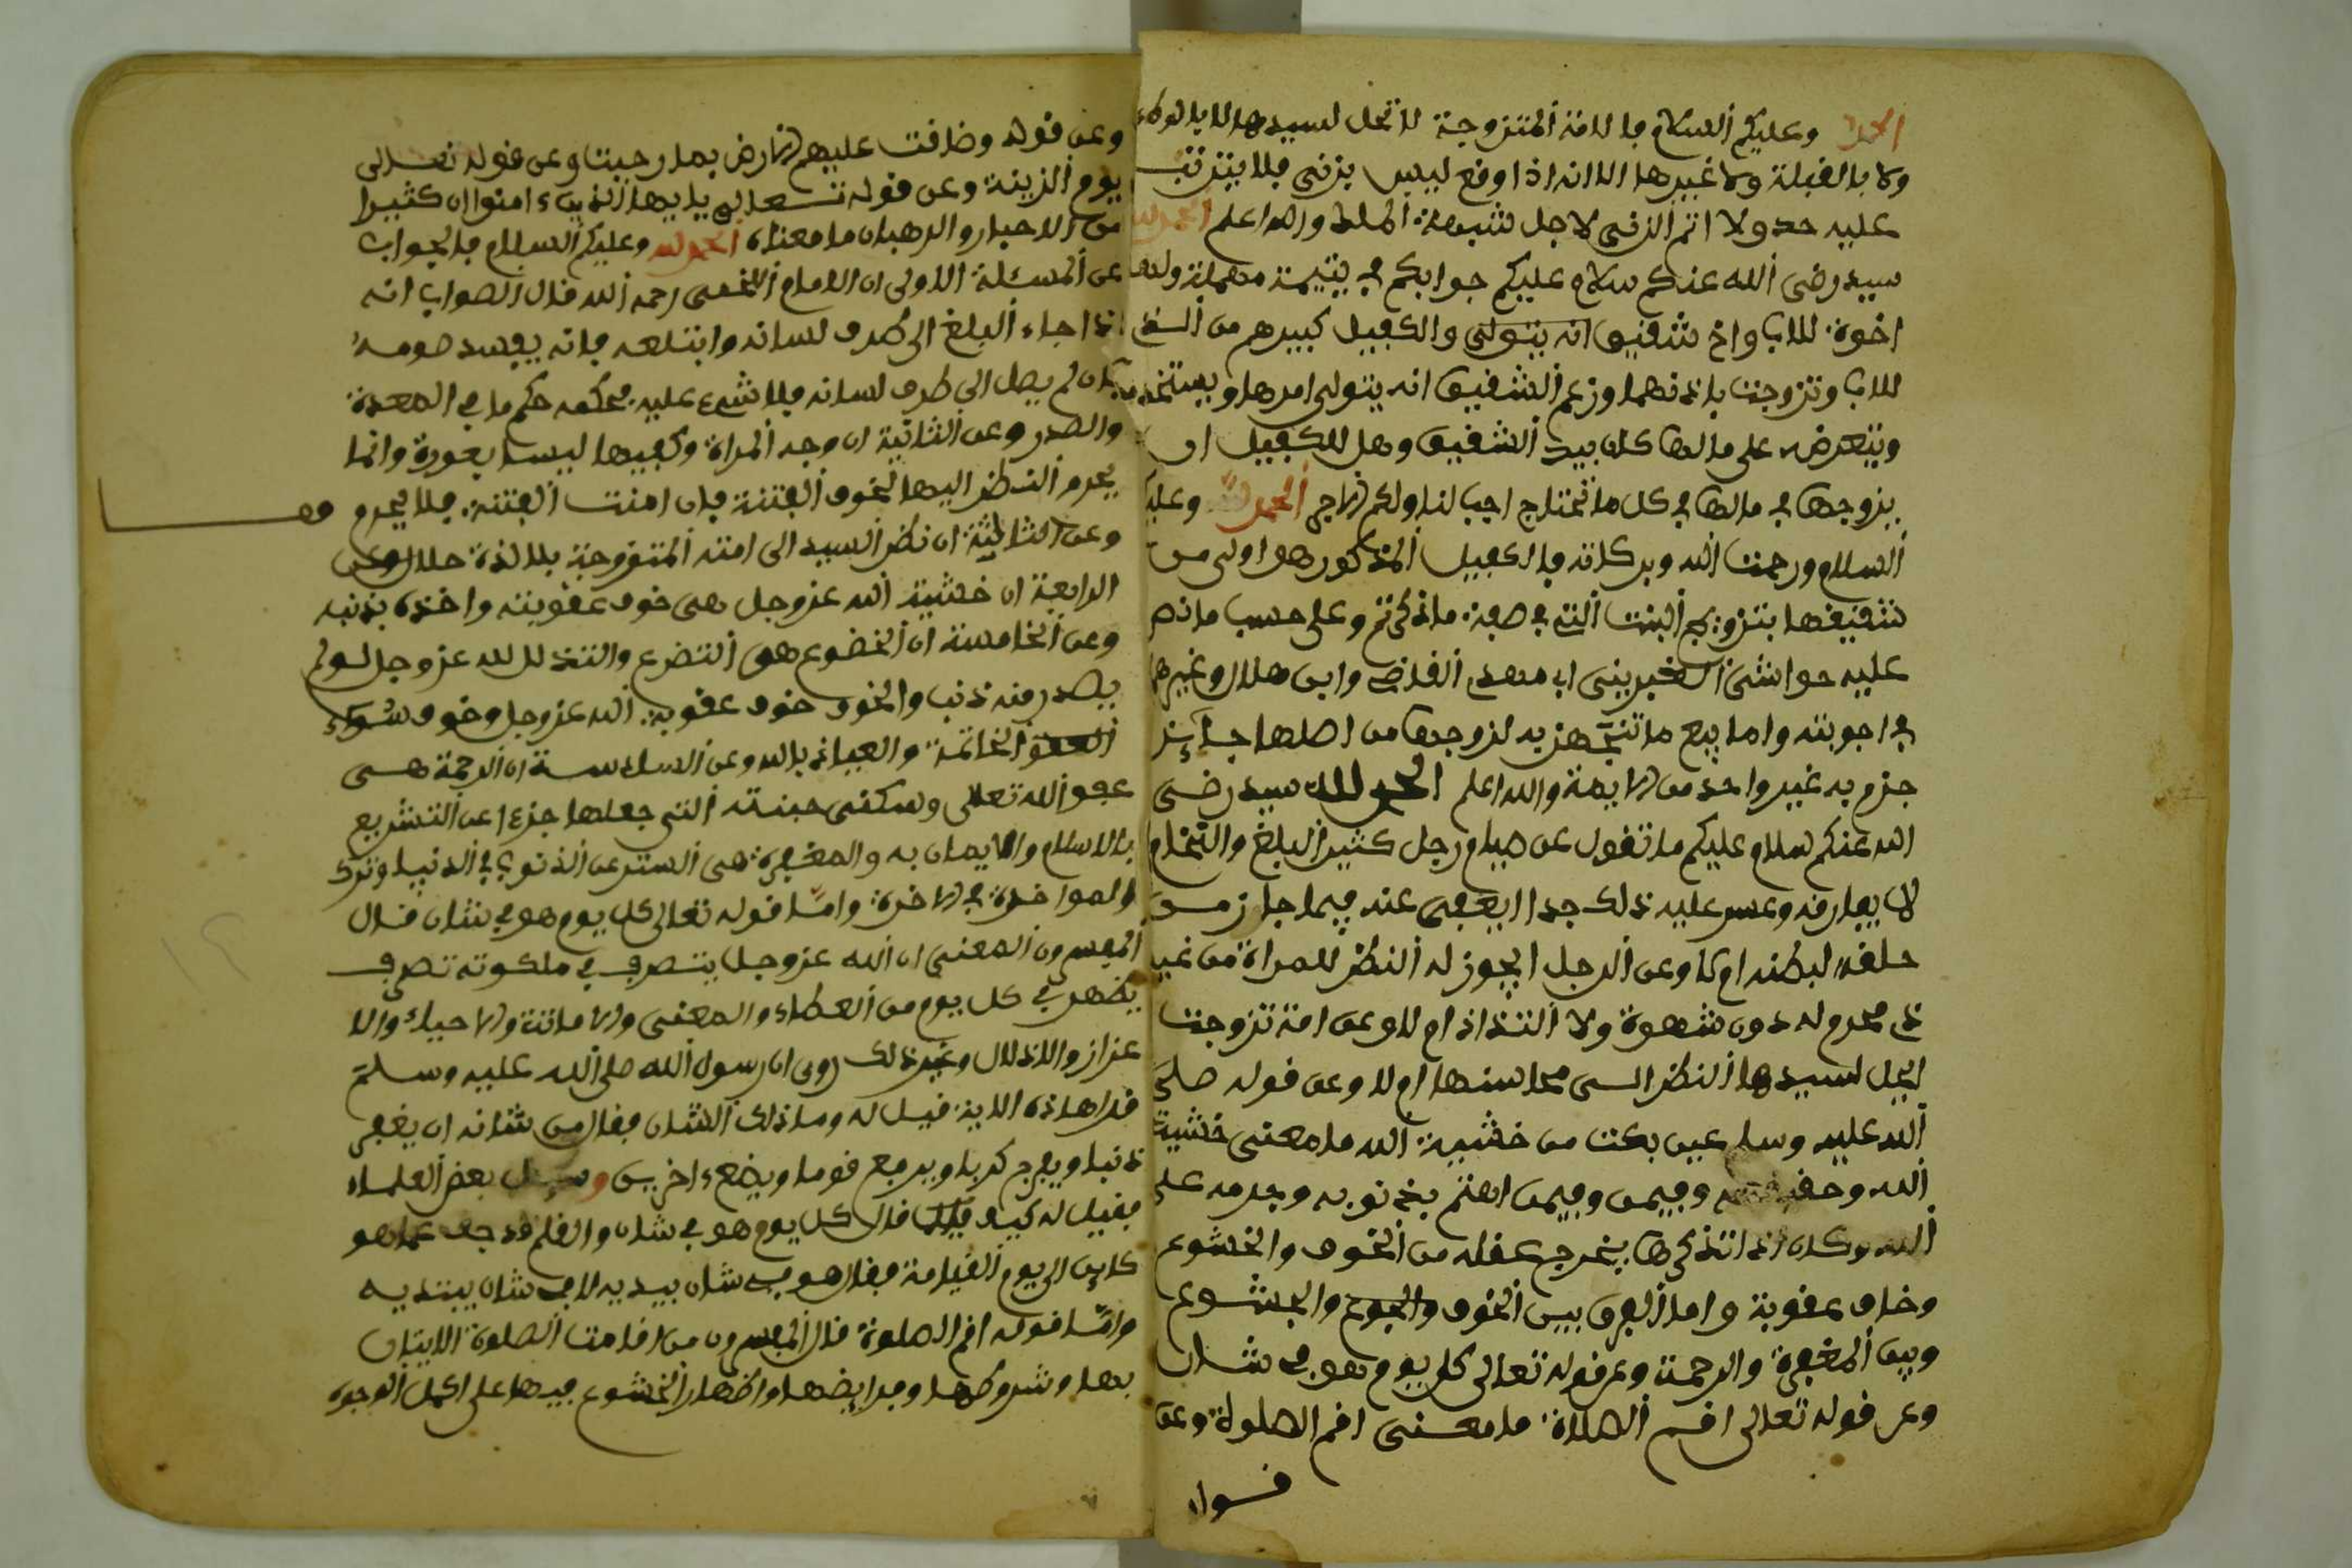 الحمد لله وعليكم السلام فالامة المتزوجة لا تحل لسيدها لا بالوطء
ولا بالقبلة ولا غيرها الا انه اذا وقع ليس بزنى فلا يترتب
عليه حد ولا اثم الزنى لاجل شبهة الملك والله اعلم الحمد لله
سيد رضي الله عنكم سلام عليكم جوابكم في يتيمة مهملة ولها
اخوة للاب واخ شقيق انه يتولى والكفيل كبيرهم من
للاب وتزوجت باذنهما وزعم الشقيق انه يتولى امرها ويستخدم
ويتعرض على مالها كان بيد الشقيق وهل للكفيل ان
يزوجها في مالها في كل ما تحتاج اجب لنا ولكم الاجر الحمد لله وعليكم
السلام ورحمت الله وبركاته فالكفيل المذكور هو اولى من
شقيقها بتزويج البنت التي في صفة ما ذكرتم وعلى حسب ما نص
عليه حواشي ابي مهدي القاضي وابن هلال وغيرهما
في اجوبته واما بيع ما تتجهز به لزوجها من اصلها جائز
جزم به غير واحد من الايمة والله اعلم الحمد لله سيد رضي
الله عنكم سلام عليكم ما تقول عن صيام رجل كثير البلغ والنخام
لا يفارقه وعسر عليه ذلك جدا ايعفى عنه فيما جاز من
حلقه لبطنه ام لا وعن الرجل ايجوز له النظر للمراة من غير
ذي محرم له دون شهوة ولا التذاذ ام لا وعن امة تزوجت
ايحل لسيدها النظر الى محاسنها ام لا وعن قوله صلى
الله عليه وسلم عين بكت من خشية الله ما معنى خشية
الله وفيمن وفيمن اهتم بذنوبه وجرمه على
الله وكان اذا تذكرها يخرج عقله من الخوف والخشوع
وخاف عقوبة واما الفرق بين الخوف والجوع والخشوع
وبين المغفرة والرحمة وعن قوله تعالى كل يوم هو في شان
وعن قوله تعالى اقم الصلاة ما معنى اقم الصلوة وعن
قوله
وعن قوله وضاقت عليهم الارض بما رحبت وعن قوله تعالى
يوم الزينة وعن قوله تعالى يايها الذين ءامنوا ان كثيرا
من الاحبار والرهبان ما معناه الحمد لله وعليكم السلام فالجواب
عن المسئلة الاولى ان الامام اللخمي رحمه الله قال الصواب انه
اذا جاء البلغ الى طرف لسانه وابتلعه فانه يفسد صومه
وان لم يصل الى طرف لسانه فلا شيء عليه فحكمه حكم ما في المعدة
والصدر وعن الثانية ان وجه المراة وكفيها ليسا بعورة وانما
يحرم النظر اليها لخوف الفتنة فان امنت الفتنة فلا يحرم
وعن الثالثة ان نظر السيد الى امته المتزوجة بلا لذة حلال وعن
الرابعة ان خشية الله عز وجل هي خوف عقوبته واخذه بذنبه
وعن الخامسة ان الخضوع هو التضرع والتذلل لله عز وجل لو لم
يصدر منه ذنب والخوف خوف عقوبة الله عز وجل وخوف سوء
الخاتمة والعياذ بالله وعن السادسة ان الرحمة هي
عفو الله تعالى وسكنى جنته التي جعلها جزءا عن التشريع
بالاسلام والايمان به والمغفرة هي الستر عن الذنوب في الدنيا وترك
المواخذة في الاخرة واما قوله تعالى كل يوم هو في شان قال
المفسرون المعنى ان الله عز وجل يتصرف في ملكوته تصرف
يظهر في كل يوم من العطاء والمعنى والاماتة والاحياء والا
عزاز والاذلال وغير ذلك روى ان رسول الله صلى الله عليه وسلم
قرا هاذه الاية فقيل له وما ذلك الشان فقال من شانه ان يغفر
ذنبا ويفرج كربا ويرفع قوما ويضع ءاخرين وسيل بعض العلماء
فقيل له كيف قال كل يوم هو في شان والقلم قد جف عما هو
كاين الى يوم القيامة فقال هو في شان يبديه لا في شان يبتديه
واما قوله اقم الصلوة قال المفسرون من اقامت الصلوة الاتيان
بها وشروطها وفرايضها واظهار الخشوع فيها على اكمل الوجوه